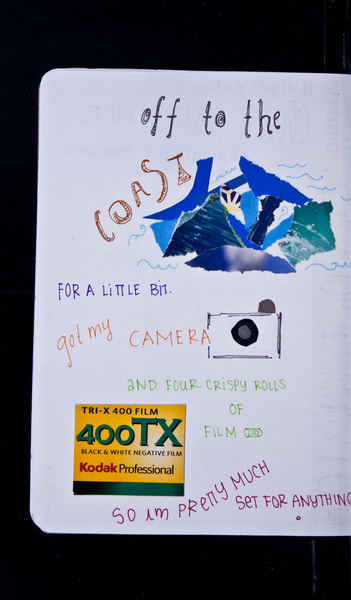 off to the
COAST
FOR A LITTLE BIT.
got my CAMERA
AND FOUR CRISPY ROLLS
OF
FILM
TRI-X 400 FILM
400TX
BLACK & WHITE NEGATIVE FILM
Kodak Professional
SO IM PRETTY MUCH
SET FOR ANYTHING